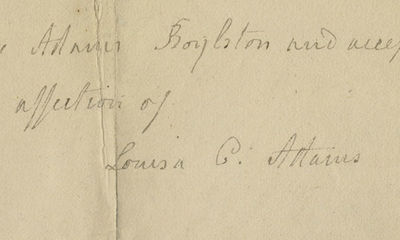 Adams Boylston and accep
affection of
Louisa C. Adams